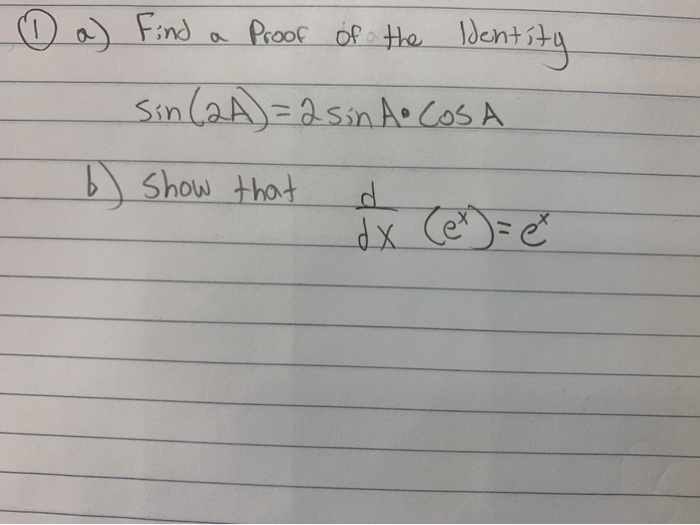 ① a) Find a Proof of the Identity
sin(2A)=2sinA•CosA
b) Show that d/dx (e^x)=e^x